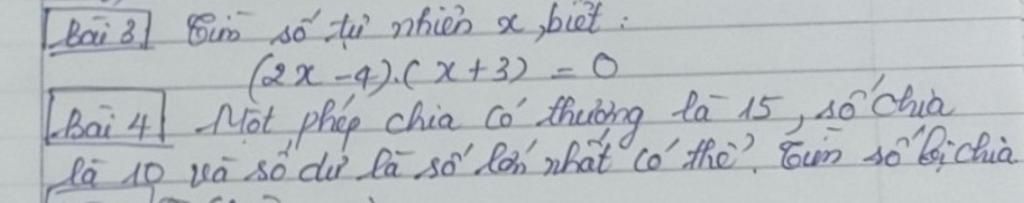 Bài 3 Tìm số tự nhiên x, biết:
(2x - 4).(x + 3) = 0
Bài 4 Một phép chia có thương là 15, số chia
là 10 và số dư là số lớn nhất có thể. Tìm số bị chia